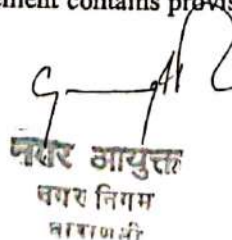 ement contains provis
नगर आयुक्त
नगर निगम
वाराणसी